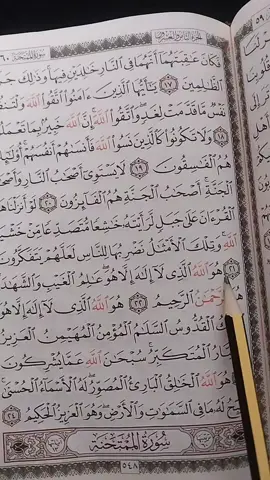 سُورَةُ المُمْتَحنَة ٦٠
فَكَانَ عَٰقِبَتَهُمَآ أَنَّهُمَا فِي ٱلنَّارِ خَٰلِدَيْنِ فِيهَا ۚ وَذَٰلِكَ
ٱلظَّٰلِمِينَ ١٧ يَٰٓأَيُّهَا ٱلَّذِينَ ءَامَنُوا۟ ٱتَّقُوا۟ ٱللَّهَ
نَفْسٌ مَّا قَدَّمَتْ لِغَدٍ ۖ وَٱتَّقُوا۟ ٱللَّهَ ۚ إِنَّ ٱللَّهَ خَبِيرٌۢ بِمَا
١٨ وَلَا تَكُونُوا۟ كَٱلَّذِينَ نَسُوا۟ ٱللَّهَ فَأَنسَىٰهُمْ أَنفُسَهُمْ ۚ
هُمُ ٱلْفَٰسِقُونَ ١٩ لَا يَسْتَوِىٓ أَصْحَٰبُ ٱلنَّارِ
ٱلْجَنَّةِ ۚ أَصْحَٰبُ ٱلْجَنَّةِ هُمُ ٱلْفَآئِزُونَ ٢٠ لَوْ أَنزَلْنَا
ٱلْقُرْءَانَ عَلَىٰ جَبَلٍ لَّرَأَيْتَهُۥ خَٰشِعًا مُّتَصَدِّعًا مِّنْ
ٱللَّهِ ۚ وَتِلْكَ ٱلْأَمْثَٰلُ نَضْرِبُهَا لِلنَّاسِ لَعَلَّهُمْ يَتَفَكَّرُونَ
٢١ هُوَ ٱللَّهُ ٱلَّذِى لَآ إِلَٰهَ إِلَّا هُوَ ۖ عَٰلِمُ ٱلْغَيْبِ
ٱلرَّحْمَٰنُ ٱلرَّحِيمُ ٢٢ هُوَ ٱللَّهُ ٱلَّذِى لَآ إِلَٰهَ إِلَّا هُوَ
ٱلْقُدُّوسُ ٱلسَّلَٰمُ ٱلْمُؤْمِنُ ٱلْمُهَيْمِنُ ٱلْعَزِيزُ
ٱلْمُتَكَبِّرُ ۚ سُبْحَٰنَ ٱللَّهِ عَمَّا يُشْرِكُونَ
هُوَ ٱللَّهُ ٱلْخَٰلِقُ ٱلْبَارِئُ ٱلْمُصَوِّرُ ۖ لَهُ ٱلْأَسْمَآءُ ٱلْحُسْنَىٰ
لَهُۥ مَا فِى ٱلسَّمَٰوَٰتِ وَٱلْأَرْضِ ۖ وَهُوَ ٱلْعَزِيزُ ٱلْحَكِيمُ ٢٤
سُورَةُ المُمْتَحنَة
٥٤٨